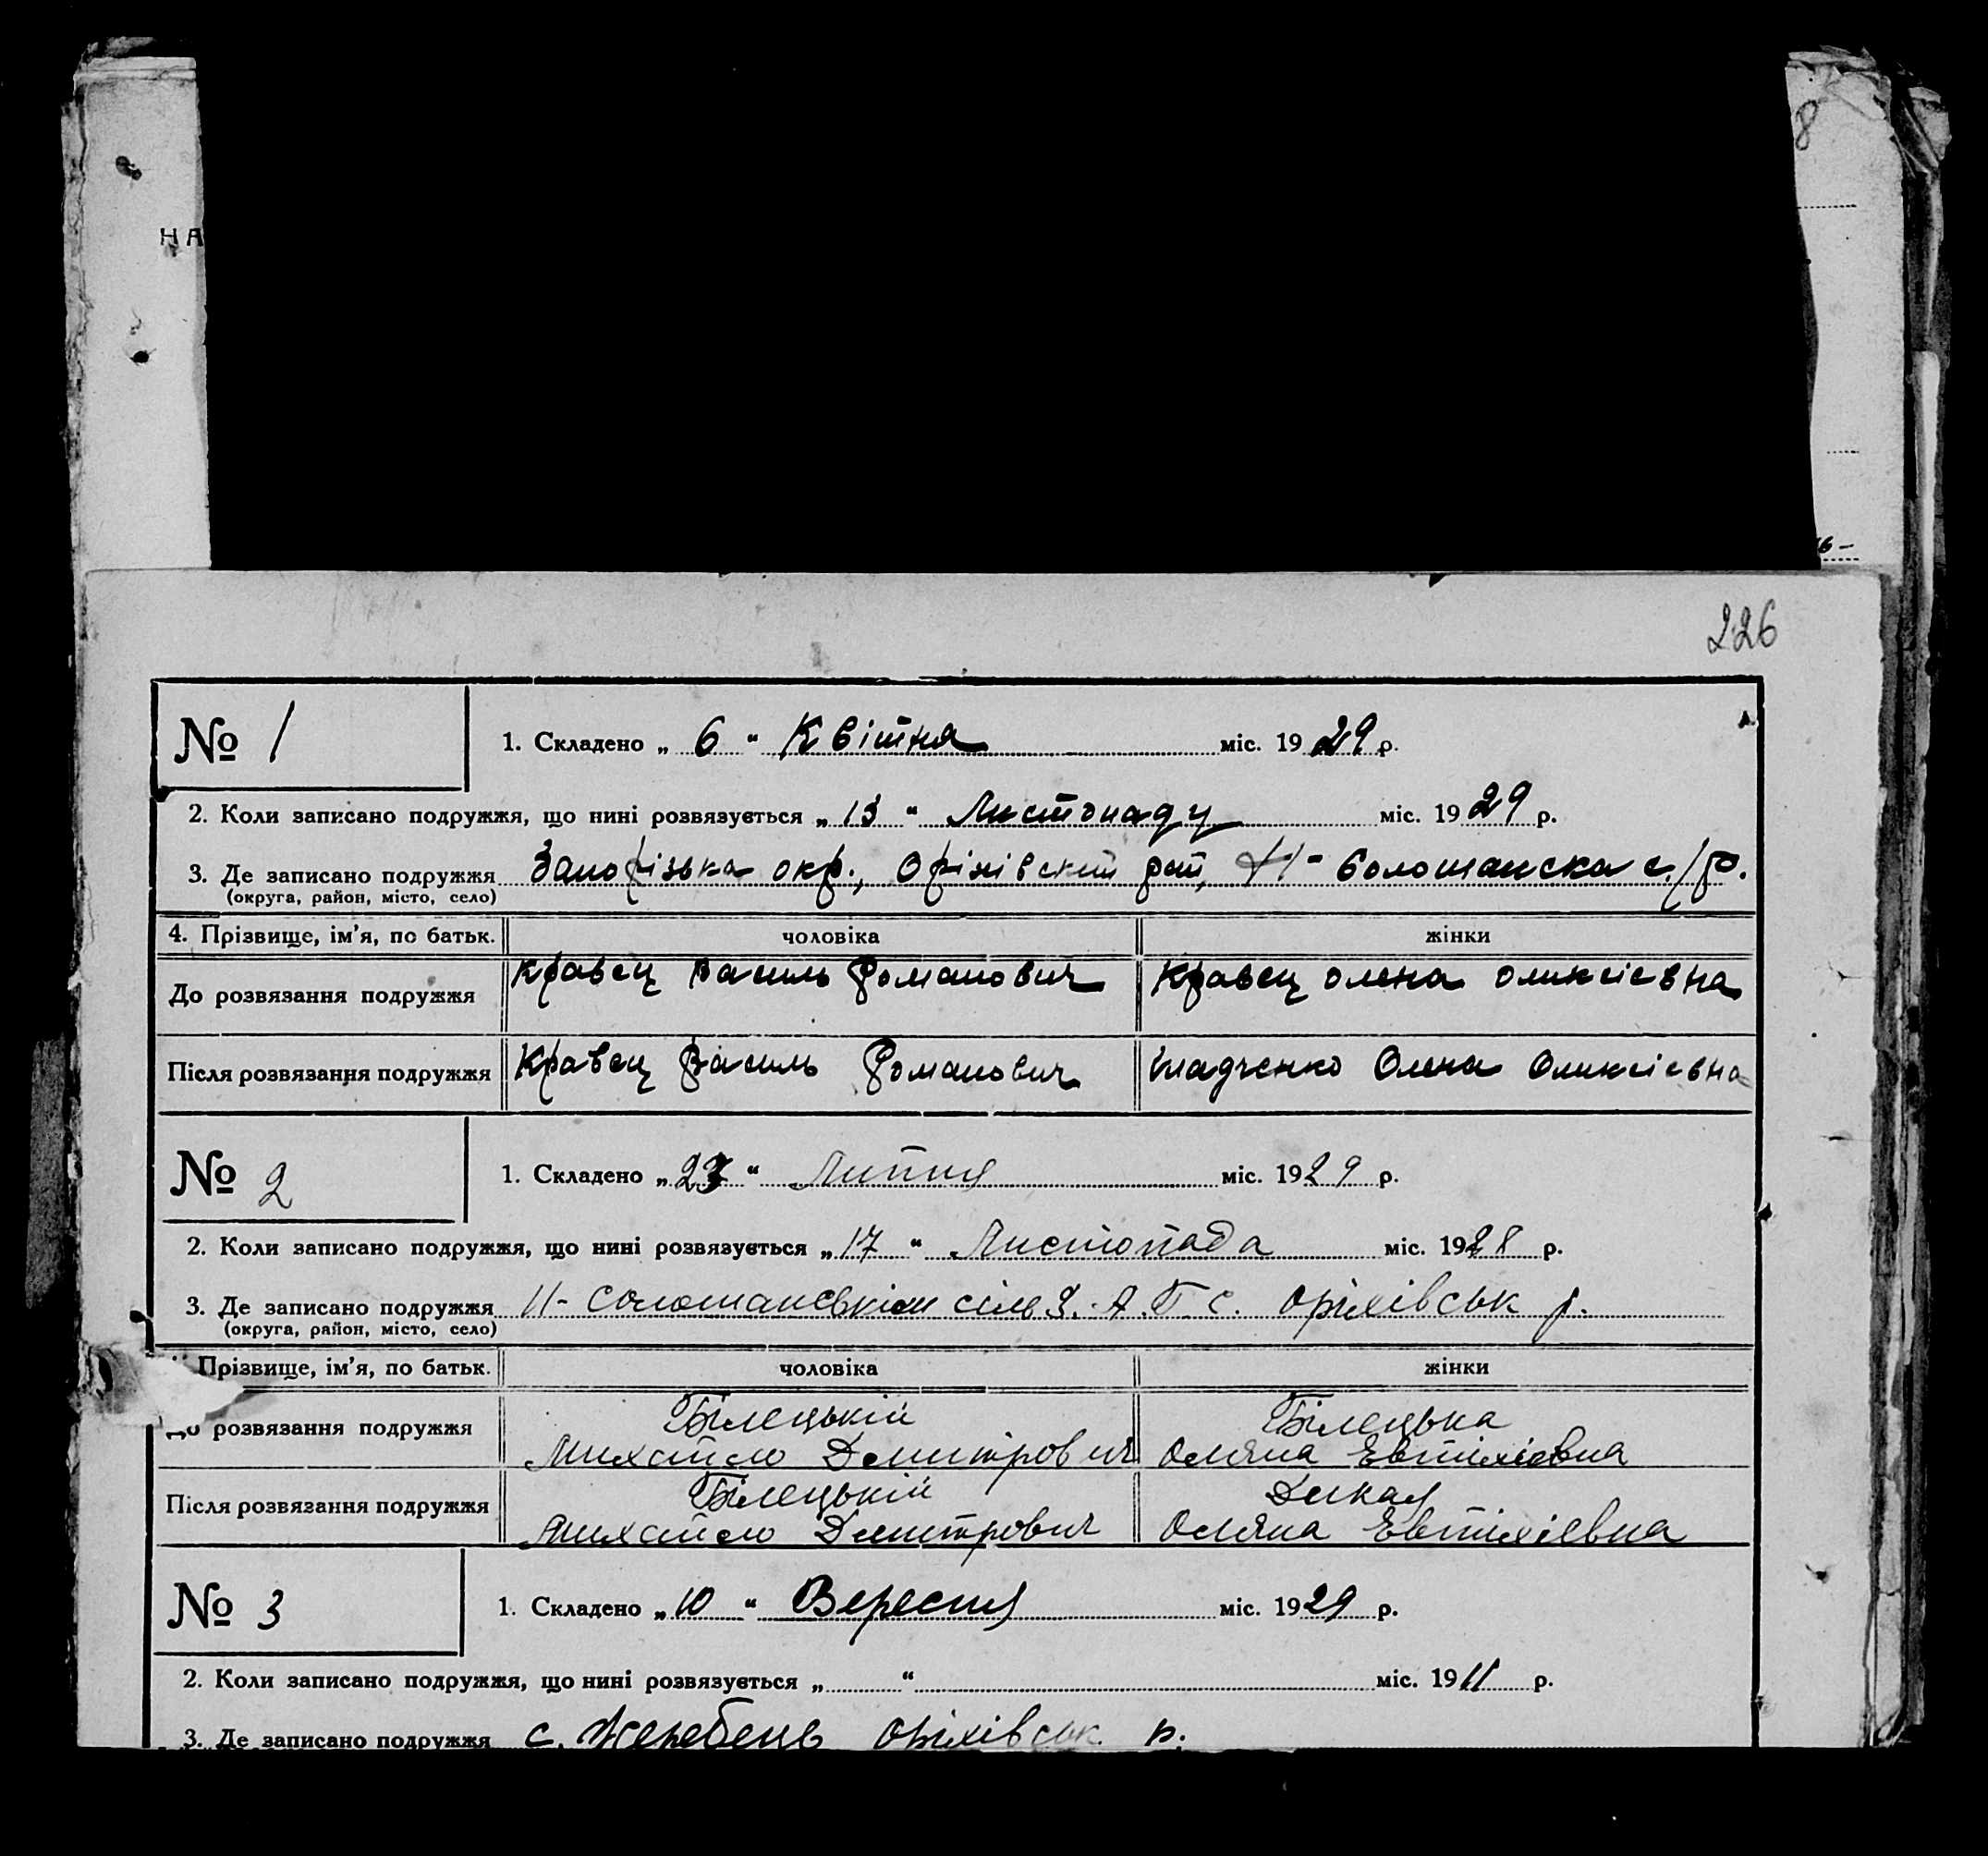 8
НА
6-
226
№ 1
1. Складено „ 6 “ Квітня міс. 19 29 р.
2. Коли записано подружжя, що нині розвязується „ 13 “ Листопаду міс. 19 29 р.
3. Де записано подружжя Запорізька окр., Оріхівский рай,
(округа, район, місто, село)
4. Прізвище, ім’я, по батьк. чоловіка жінки
До розвязання подружжя Кравец Василь Романович Кравец Олена Оликсіевна
Після розвязання подружжя Кравец Василь Романович Олена Оликсіевна
№ 2
1. Складено „ 23 “ Липня міс. 19 29 р.
2. Коли записано подружжя, що нині розвязується „ 17 “ Листопада міс. 19 28 р.
3. Де записано подружжя Оріхівськ р.
(округа, район, місто, село)
Прізвище, ім’я, по батьк. чоловіка жінки
Білецький Білецька
До розвязання подружжя Михайло Демитрович Оляна Евтихіевна
Білецький Дикая
Після розвязання подружжя Михайло Демитрович Оляна Евтихіевна
№ 3
1. Складено „ 10 “ Вересня міс. 19 29 р.
2. Коли записано подружжя, що нині розвязується „ “ міс. 19 11 р.
3. Де записано подружжя с. Жеребець Оріхівськ. р.